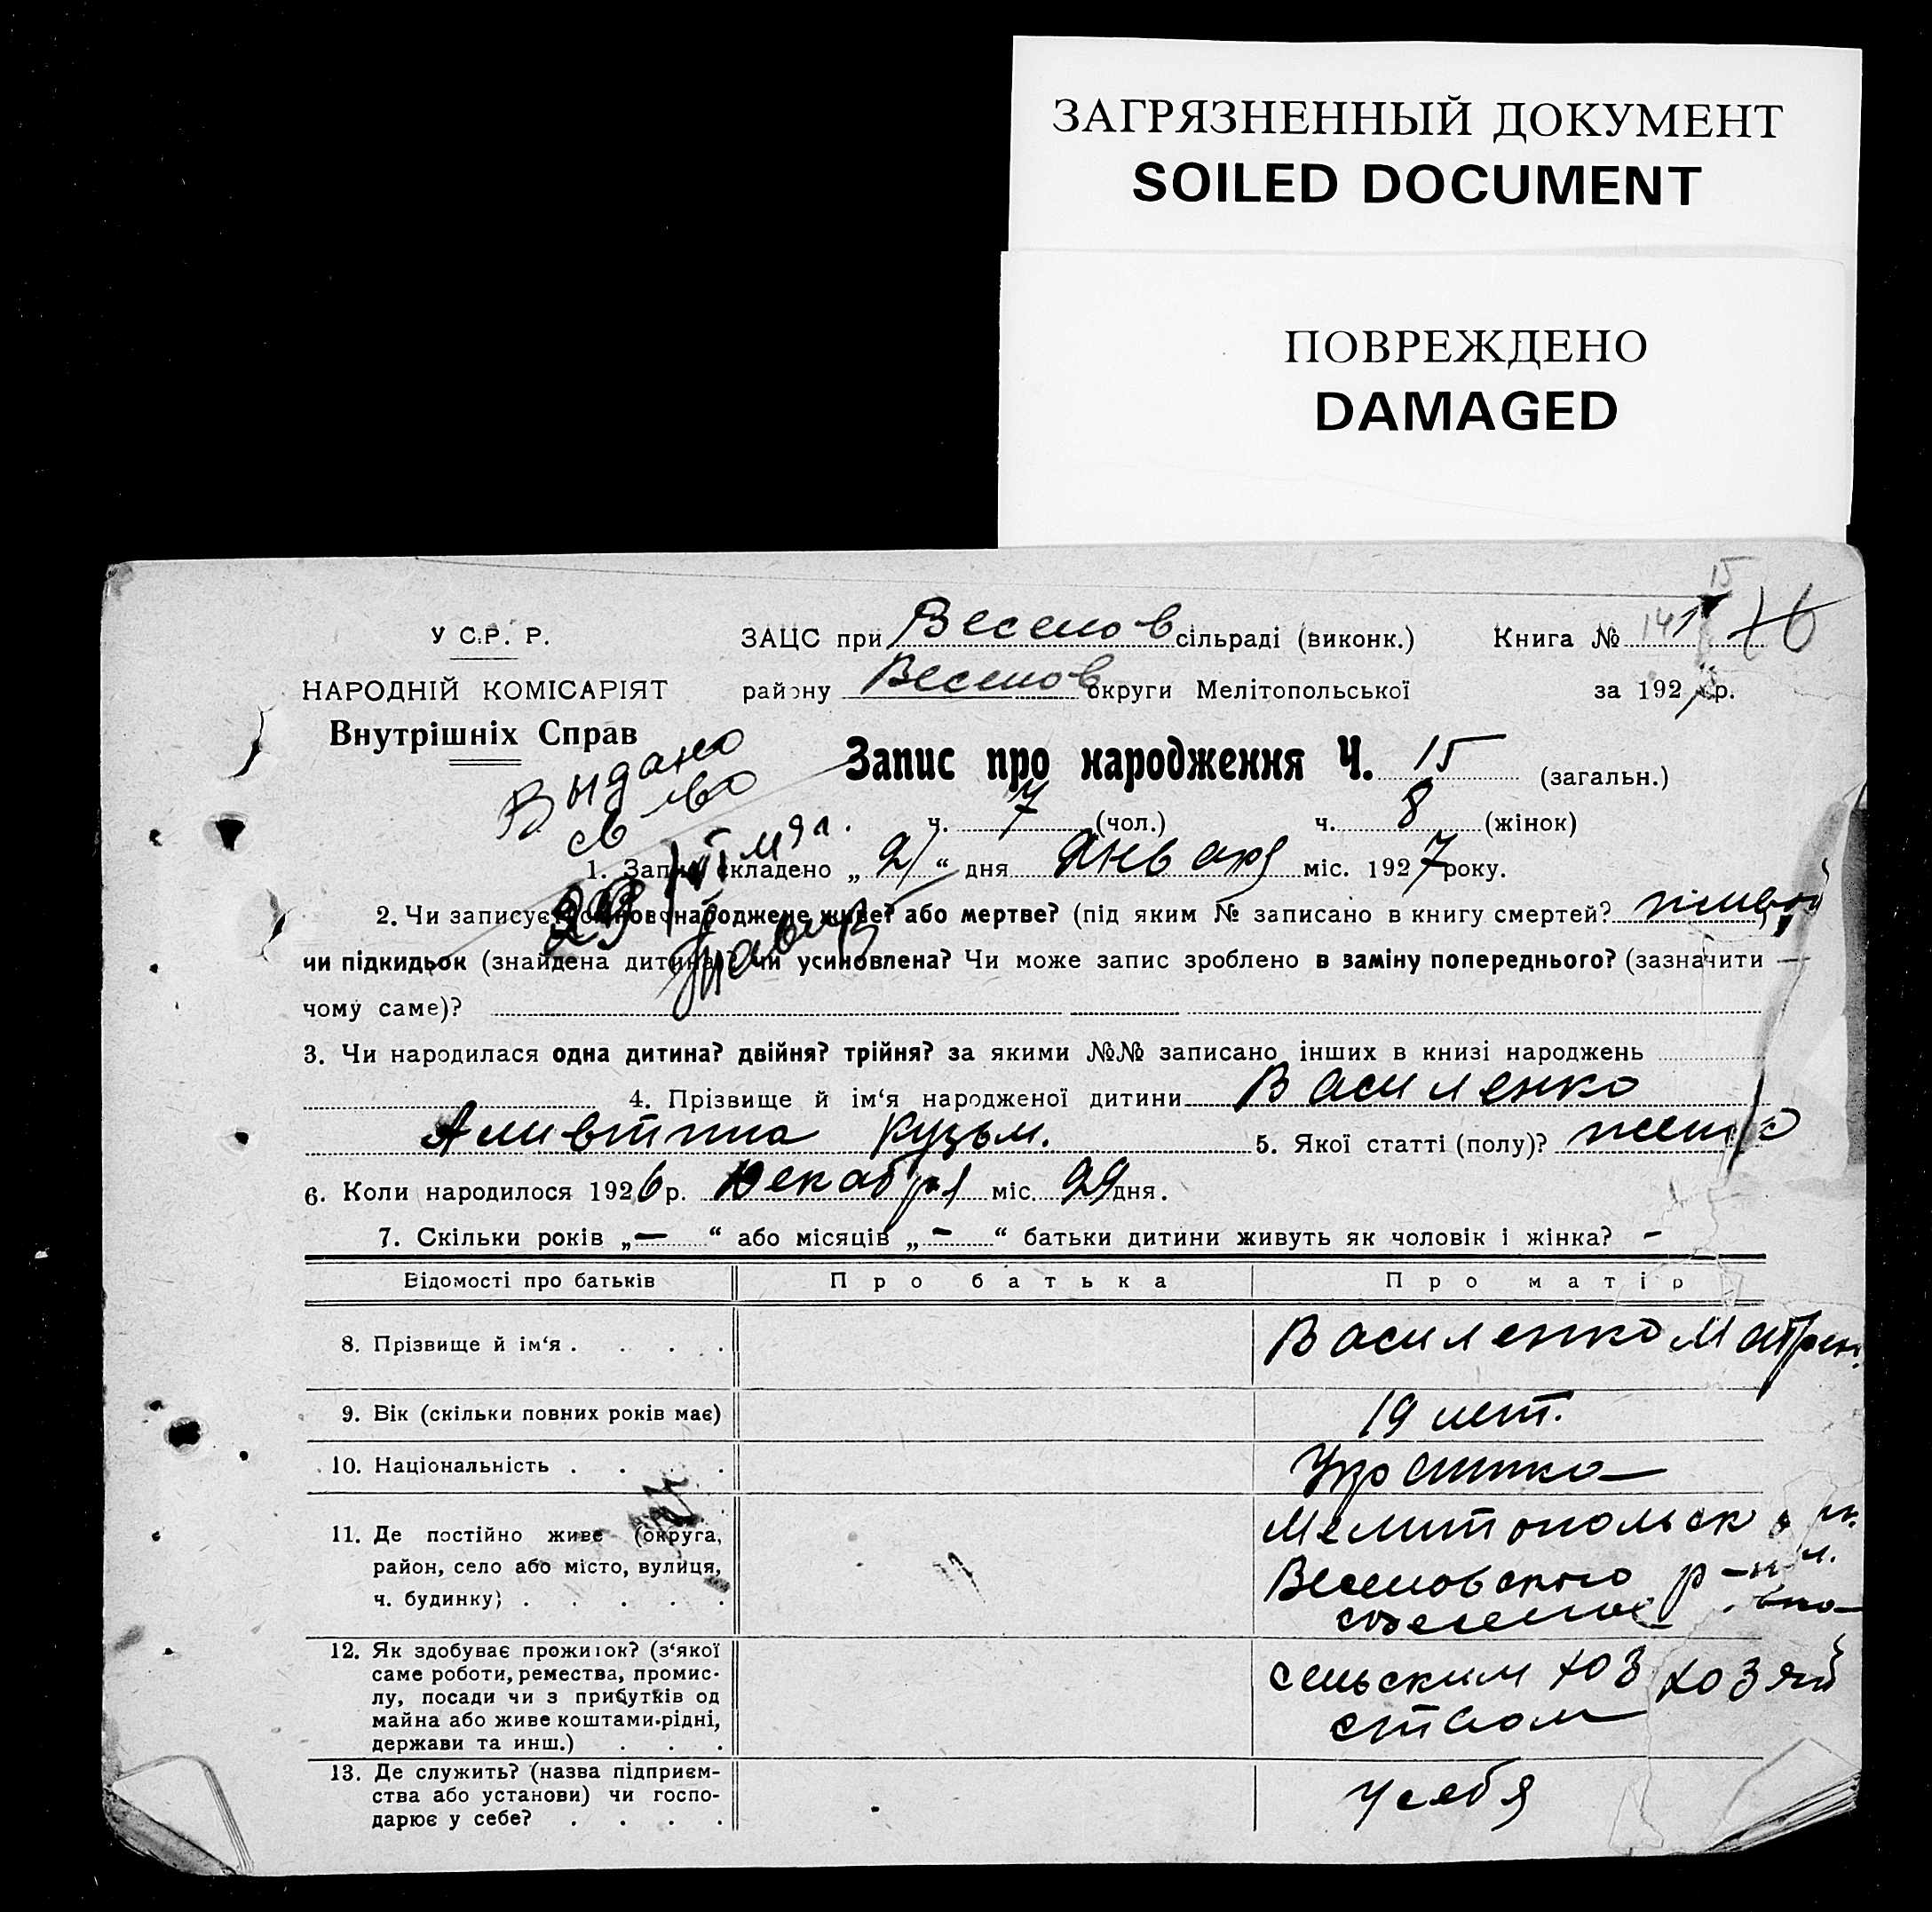 ЗАГРЯЗНЕННЫЙ ДОКУМЕНТ
SOILED DOCUMENT
ПОВРЕЖДЕНО
DAMAGED
15
У С.Р. Р. ЗАЦС при Веселов сільраді (виконк.) Книга № 141
НАРОДНІЙ КОМІСАРІЯТ району Веселов округи Мелітопольської за 192 р.
Внутрішніх Справ
Выдано
св во
Запис про народження Ч. 15 (загальн.)
ч. 7 (чол.) ч. 8 (жінок)
1. Запис складено „ 2 “ дня Января міс. 1927 року.
2. Чи записується новонароджене живе? або мертве? (під яким № записано в книгу смертей? живой)
чи підкидьок (знайдена дитина) чи усиновлена? Чи може запис зроблено в заміну попереднього? (зазначити —
чому саме)?
3. Чи народилася одна дитина? двійня? трійня? за якими №№ записано інших в книзі народжень
4. Прізвище й ім‘я народженої дитини Василенко
Аливтина Кузьм. 5. Якої статті (полу)? женс
6. Коли народилося 1926 р. Декабря міс. 29 дня.
7. Скільки років „—“ або місяців „—“ батьки дитини живуть як чоловік і жінка? –
Відомості про батьків Про батька Про матір
8. Прізвище й ім‘я . . . . Василенко Матрен.
9. Вік (скільки повних років має) 19 лет.
10. Національність . . . . Украинка
11. Де постійно живе (округа,
район, село або місто, вулиця,
ч. будинку) . . . . .
Мелитопольск
Веселовского р-н
12. Як здобуває прожиток? (з‘якої
саме роботи, ремества, промис-
лу, посади чи з прибутків од
майна або живе коштами-рідні,
держави та инш.) . . .
сельским хоз хозяй
ством
13. Де служить? (назва підприєм-
ства або установи) чи госпо-
дарює у себе? . . . .
у себя